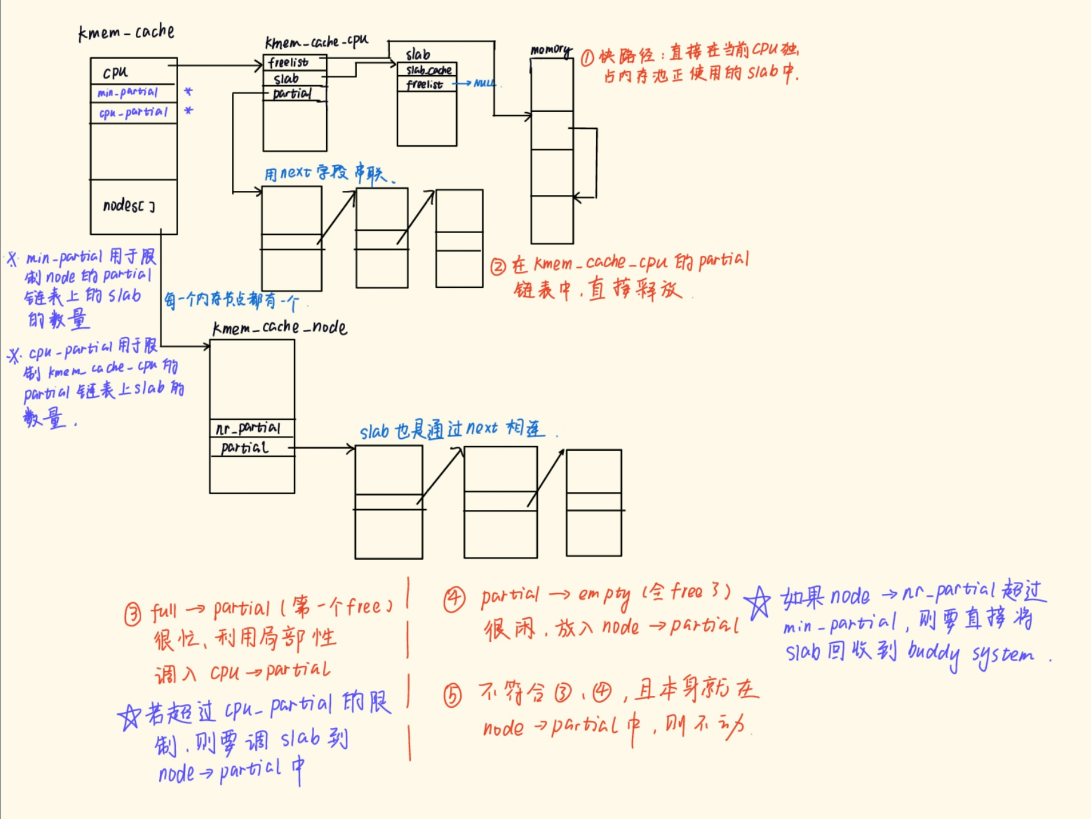 kmem_cache
cpu
min_partial *
cpu_partial *
nodes[]
kmem_cache_cpu
freelist
slab
partial
slab
slab_cache
freelist → NULL
memory
① 快路径：直接在当前CPU独
占内存池正使用的slab中.
用next字段串联、
② 在kmem_cache_cpu的partial
链表中，直接释放
※ min_partial用于限
制node的partial
链表上的slab
的数量
※. cpu_partial用于限
制kmem_cache_cpu的
partial链表上slab的
数量.
每一个内存节点都有一个.
kmem_cache_node
nr_partial
partial
slab也是通过next相连.
③ full→partial (第一个free)
很忙、利用局部性
调入 cpu→partial
☆若超过cpu_partial的限
制、则要调slab到
node→partial中
④ partial→empty (全free了)
很闲、放入node→partial
⑤ 不符合③、④，且本身就在
node→partial中，则不动.
☆ 如果node→nr_partial超过
min_partial，则要直接将
slab回收到buddy system.